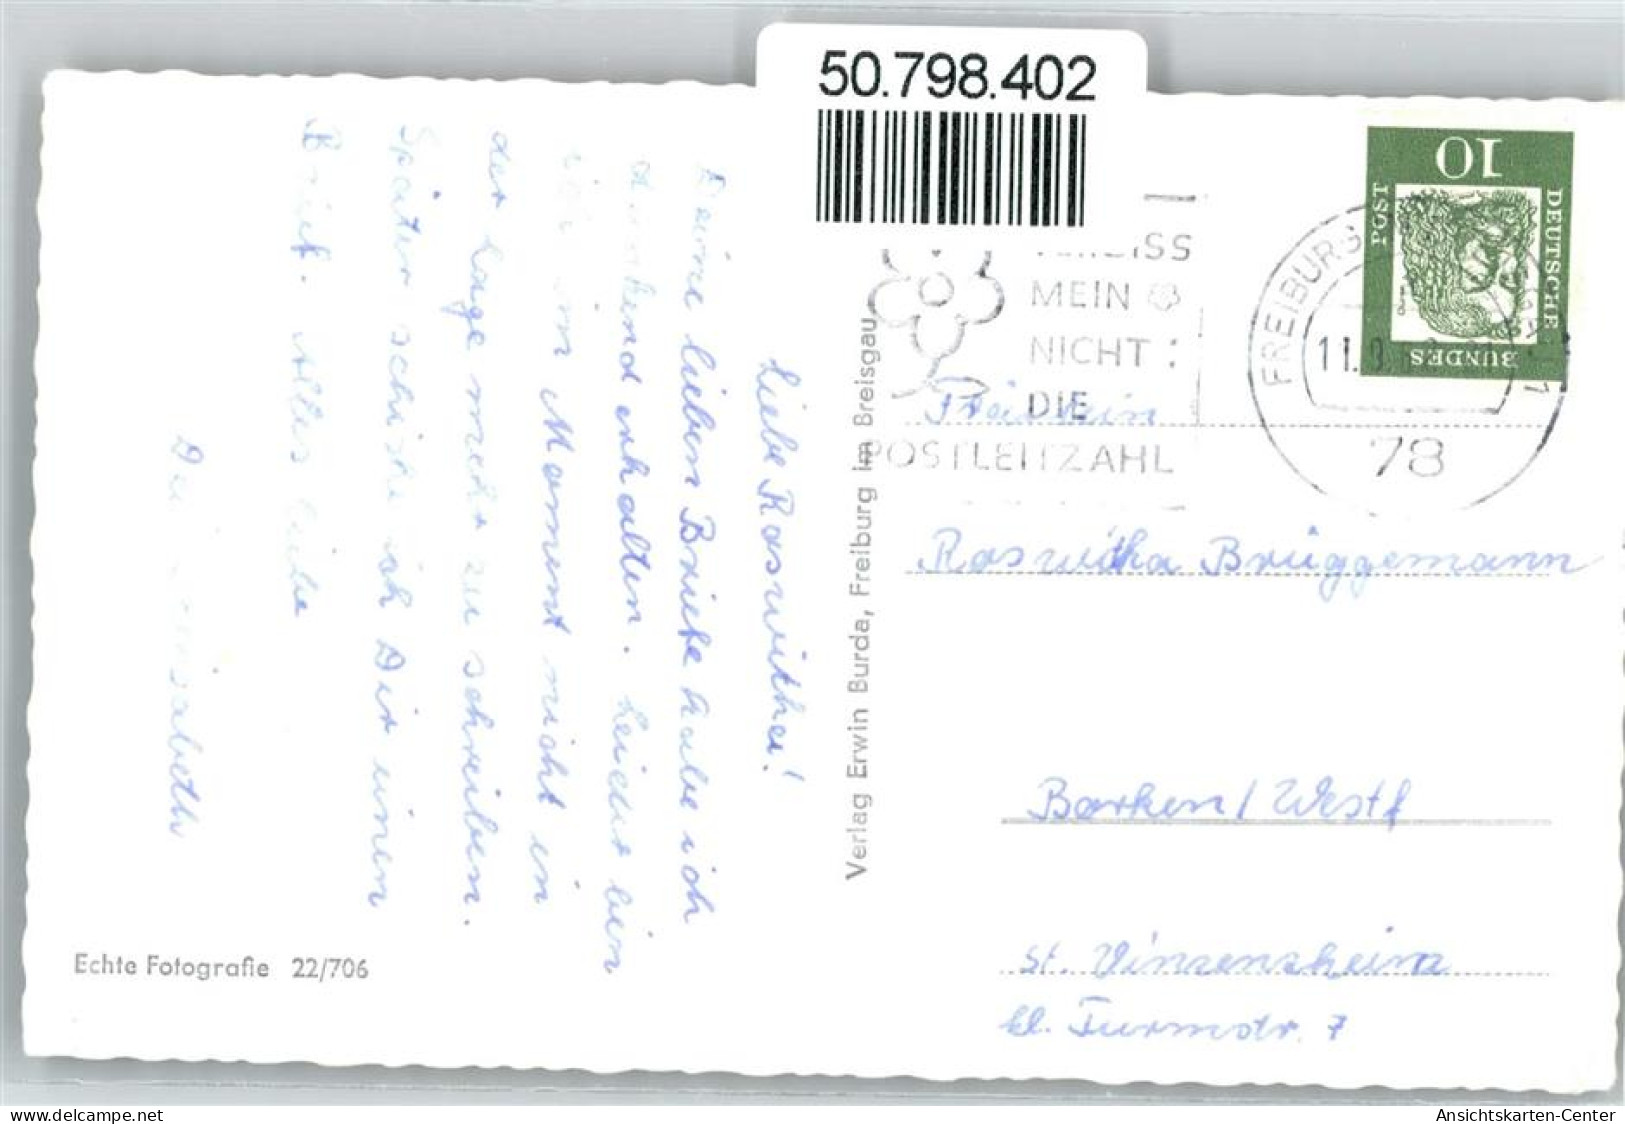 50.798.402
Liebe Roswitha!
Deine lieben Briefe habe ich
dankend erhalten. Leider bin
ich im Moment nicht in
der Lage mehr zu schreiben.
Später schicke ich Dir einen
Brief. Alles Liebe
Elisabeth
Echte Fotografie 22/706
Verlag Erwin Burda, Freiburg im Breisgau
MEIN
NICHT :
DIE
POSTLEITZAHL
FREIBURG
11.
78
10
DEUTSCHE
BUNDES
POST
Fräulein
Roswitha Brüggemann
Borken / Westf
St. Vinzensheim
kl. Turmstr. 7
www.delcampe.net
Ansichtskarten-Center